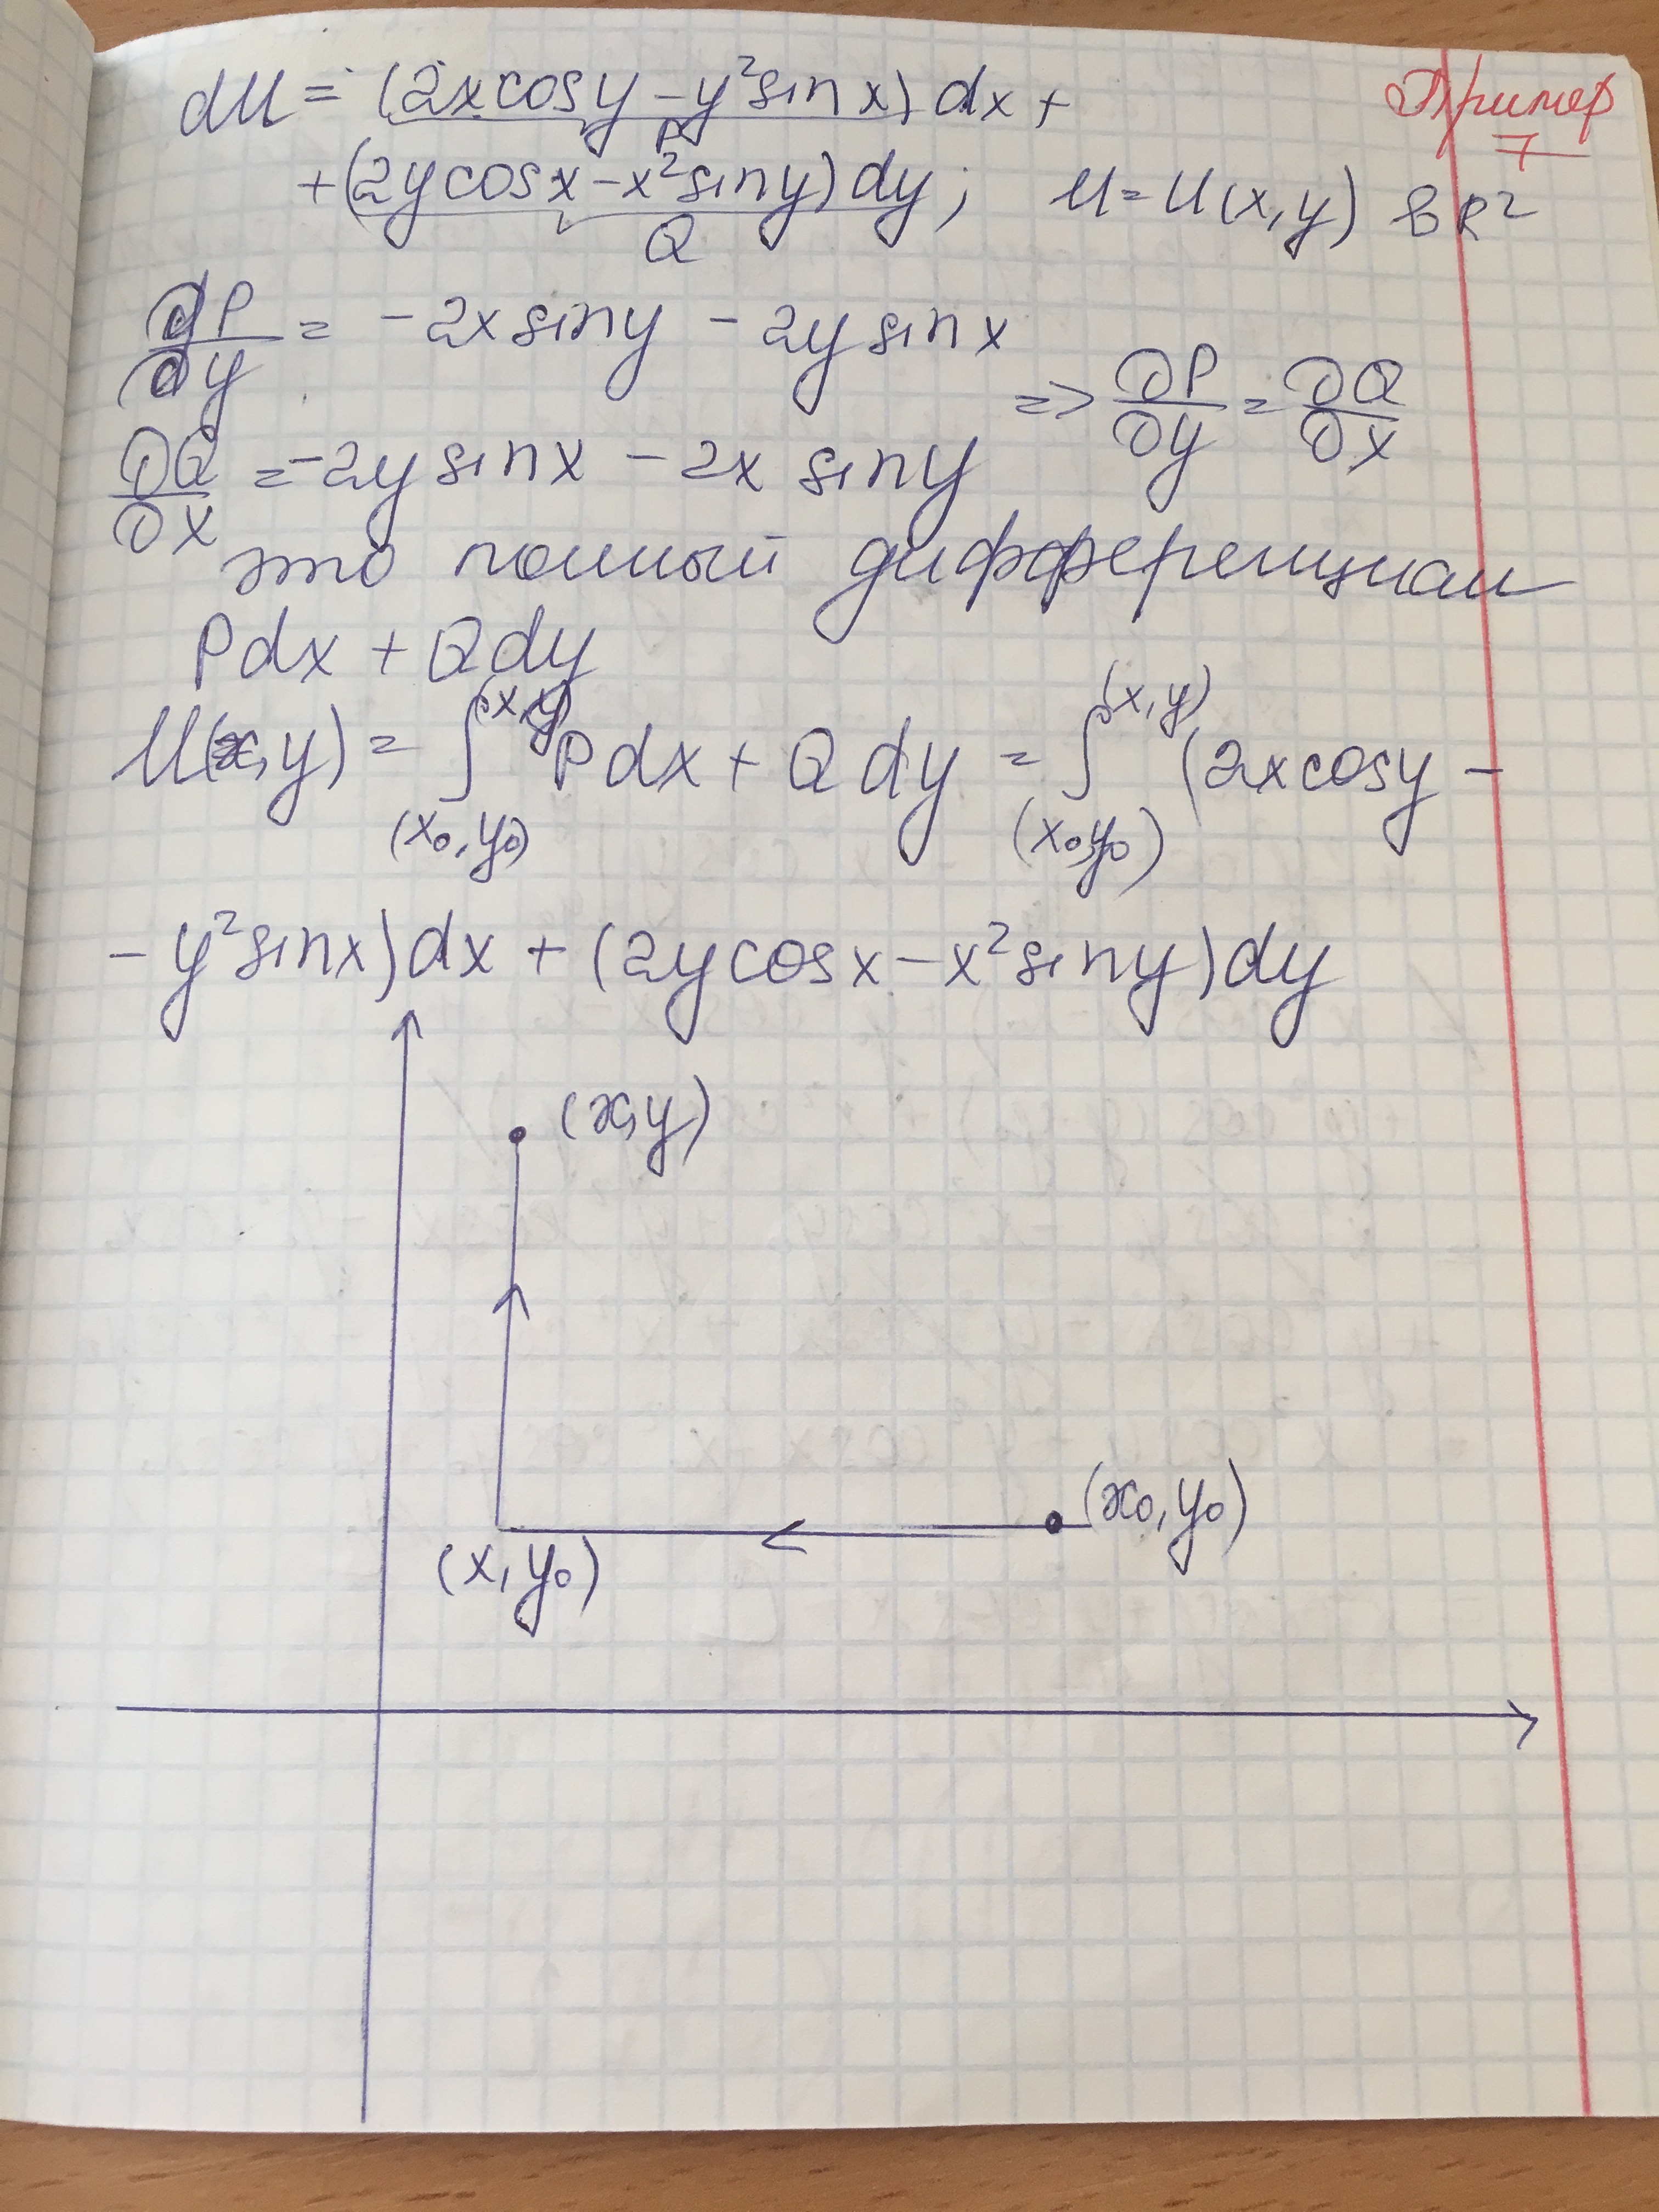 Пример 7
du = (2x cos y – y² sin x) dx +
P
+ (2y cos x – x² sin y) dy; u = u(x, y) в R²
Q
∂P/∂y = – 2x sin y – 2y sin x
=> ∂P/∂y = ∂Q/∂x
∂Q/∂x = –2y sin x – 2x sin y
это полный дифференциал
Pdx + Qdy
u(x, y) = ∫_(x₀, y₀)^(x, y) Pdx + Q dy = ∫_(x₀, y₀)^(x, y) (2x cos y –
– y² sin x) dx + (2y cos x – x² sin y) dy
(x, y)
(x₀, y₀)
(x, y₀)